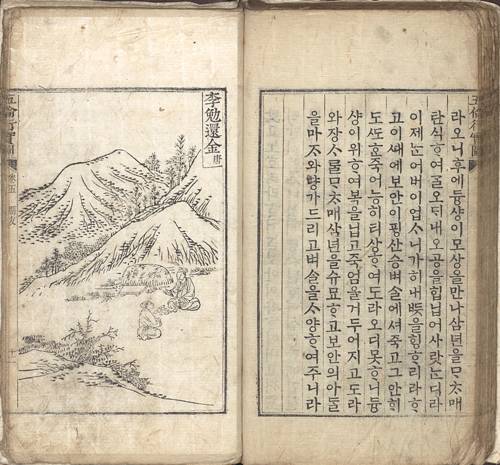 라오니후에듕샹이모상을만나삼년을ᄆᆞᄎᆞ매
란식ᄒᆞ여ᄀᆞᆯ오ᄃᆡ내오공을힘닙어사랏ᄂᆞᆫ디라
이제ᄂᆞᆫ어버이업ᄉᆞ니가히내ᄯᅳᆺ을ᄒᆡᆼᄒᆞ리라ᄒᆞ
고이ᄯᅢ에보안이핑산승벼ᄉᆞᆯ에셔죽고그안ᄒᆡ
도ᄯᅩᄒᆞᆫ죽어능히티상ᄒᆞ여도라오디못ᄒᆞ니듕
샹이위ᄒᆞ여복을닙고죽엄을거두어지고도라
와장ᄉᆞᄅᆞᆯᄆᆞᄎᆞ매삼년을슈묘ᄒᆞ고보안의아ᄃᆞᆯ
을마ᄌᆞ와댱가드리고벼ᄉᆞᆯ을ᄉᆞ양ᄒᆞ여주니라
李勉還金 唐
五倫行實圖 卷五 朋友